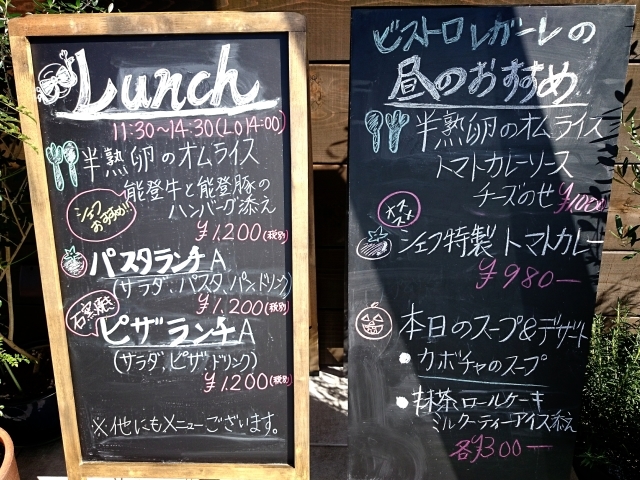 Lunch
11:30~14:30(Lo14:00)
半熟卵のオムライス
シェフおすすめ!!
能登牛と能登豚の
ハンバーグ添え
¥1,200(税別)
パスタランチA
(サラダ、パスタ、パン、ドリンク)
¥1,200(税別)
石窯焼き
ピザランチA
(サラダ、ピザ、ドリンク)
¥1,200(税別)
※他にもメニューございます。
ビストロレガーレの
昼のおすすめ
半熟卵のオムライス
トマトカレーソース
チーズのせ ¥1000
オススメ
シェフ特製トマトカレー
¥980—
本日のスープ&デザート
• カボチャのスープ
• 抹茶ロールケーキ
ミルクティーアイス添え
各¥300—